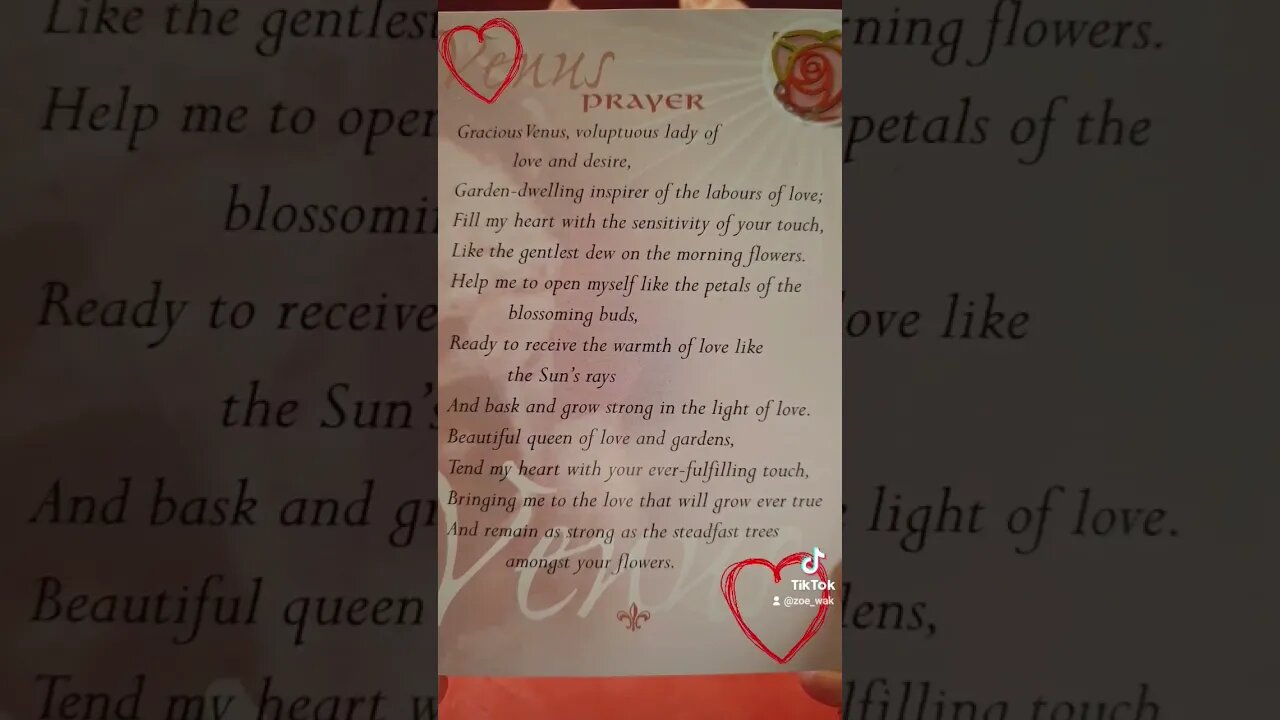 Venus
PRAYER
Gracious Venus, voluptuous lady of
love and desire,
Garden-dwelling inspirer of the labours of love;
Fill my heart with the sensitivity of your touch,
Like the gentlest dew on the morning flowers.
Help me to open myself like the petals of the
blossoming buds,
Ready to receive the warmth of love like
the Sun's rays
And bask and grow strong in the light of love.
Beautiful queen of love and gardens,
Tend my heart with your ever-fulfilling touch,
Bringing me to the love that will grow ever true
And remain as strong as the steadfast trees
amongst your flowers.
Venus
TikTok
@zoe_wak
Like the gentles
ning flowers.
Help me to oper
petals of the
blossomi
Ready to receive
ove like
the Sun's
And bask and g
light of love.
Beautiful queen
dens,
Tend my heart
lfilling touch,